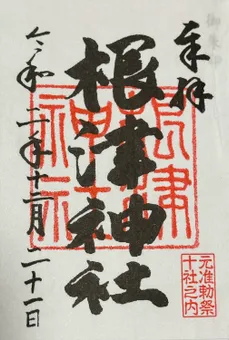 奉拝
根津神社
令和二年十二月二十一日
根津
神社
元准勅祭
十社之内